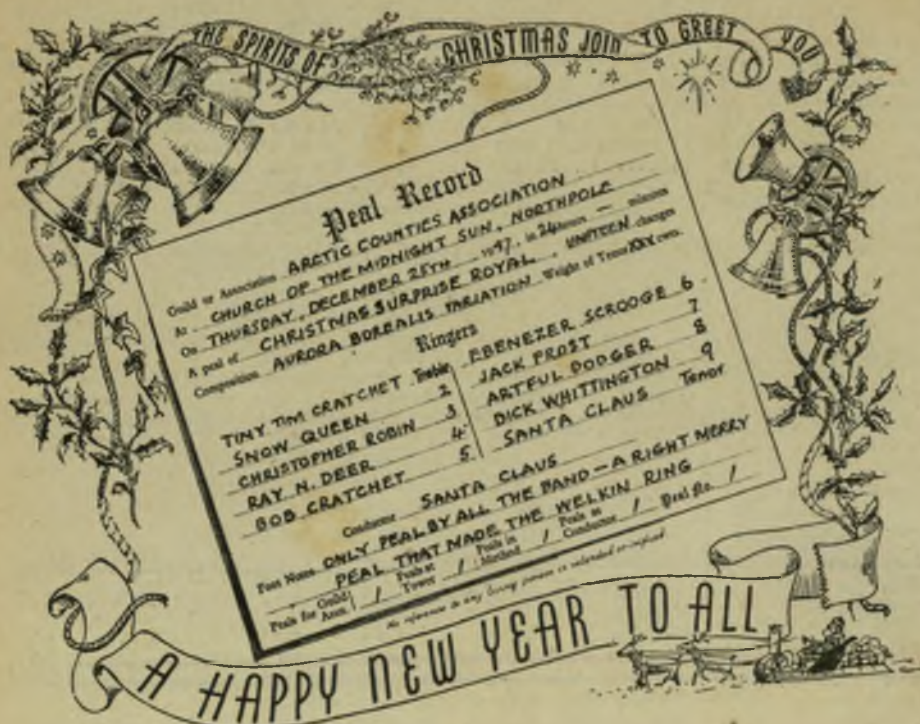 THE SPIRITS OF CHRISTMAS JOIN TO GREET YOU
Peal Record
Guild or Association ARCTIC COUNTIES ASSOCIATION
At CHURCH OF THE MIDNIGHT SUN, NORTHPOLE
On THURSDAY, DECEMBER 25TH 1947, in 24 hours — minutes
A peal of CHRISTMAS SURPRISE ROYAL, UMTEEN changes
Composition AURORA BOREALIS VARIATION Weight of Tenor XXX cwts.
Ringers
TINY TIM CRATCHET Treble
SNOW QUEEN 2
CHRISTOPHER ROBIN 3
RAY N. DEER 4
BOB CRATCHET 5
EBENEZER SCROOGE 6
JACK FROST 7
ARTFUL DODGER 8
DICK WHITTINGTON 9
SANTA CLAUS Tenor
Conductor SANTA CLAUS
Foot Notes ONLY PEAL BY ALL THE BAND — A RIGHT MERRY
PEAL THAT MADE THE WELKIN RING
Peals for Guild/Assn. 1 Peals at Tower 1 Peals in Method 1 Peals as Conductor 1 Peal No. 1
No reference to any living person is intended or implied
A HAPPY NEW YEAR TO ALL